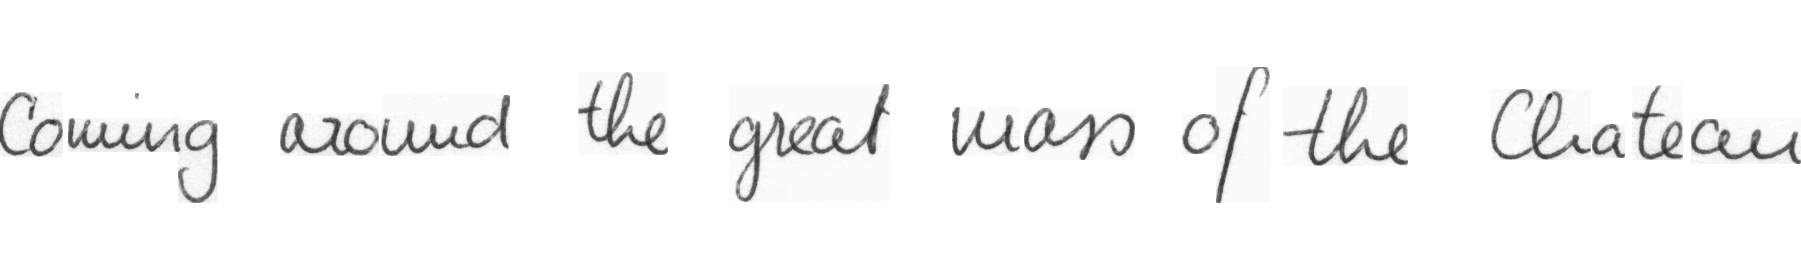 Coming around the great mass of the Chateau